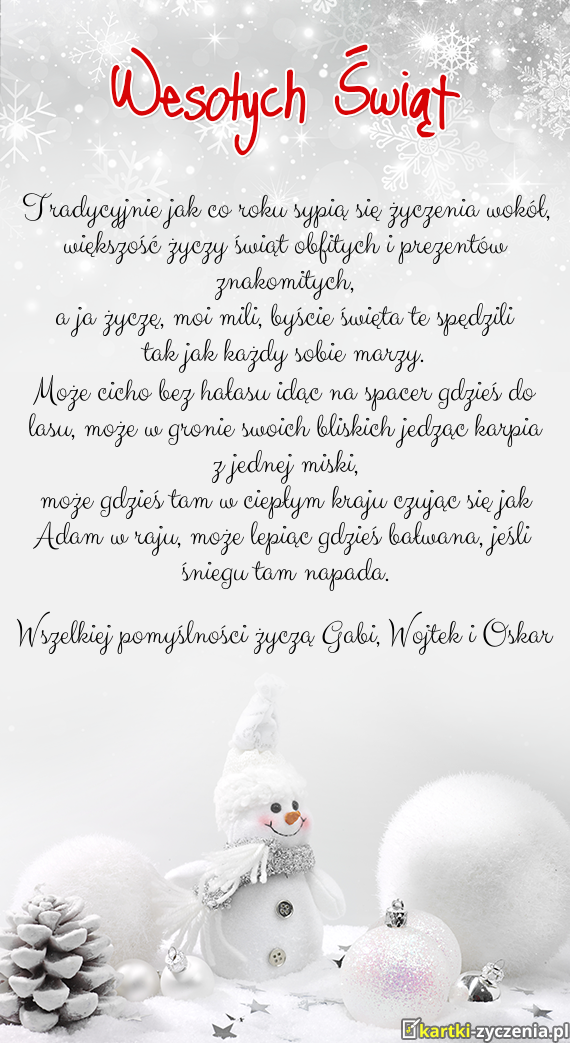 Wesołych Świąt
Tradycyjnie jak co roku sypią się życzenia wokół,
większość życzy świąt obfitych i prezentów
znakomitych,
a ja życzę, moi mili, byście święta te spędzili
tak jak każdy sobie marzy.
Może cicho bez hałasu idąc na spacer gdzieś do
lasu, może w gronie swoich bliskich jedząc karpia
z jednej miski,
może gdzieś tam w ciepłym kraju czując się jak
Adam w raju, może lepiąc gdzieś bałwana, jeśli
śniegu tam napada.
Wszelkiej pomyślności życzą Gabi, Wojtek i Oskar
kartki-zyczenia.pl